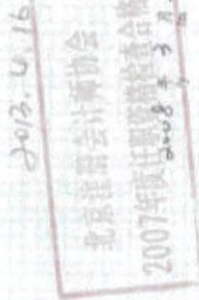 2013.4.16
北京注册会计师协会
2007年度任职资格检查合格
2008年3月